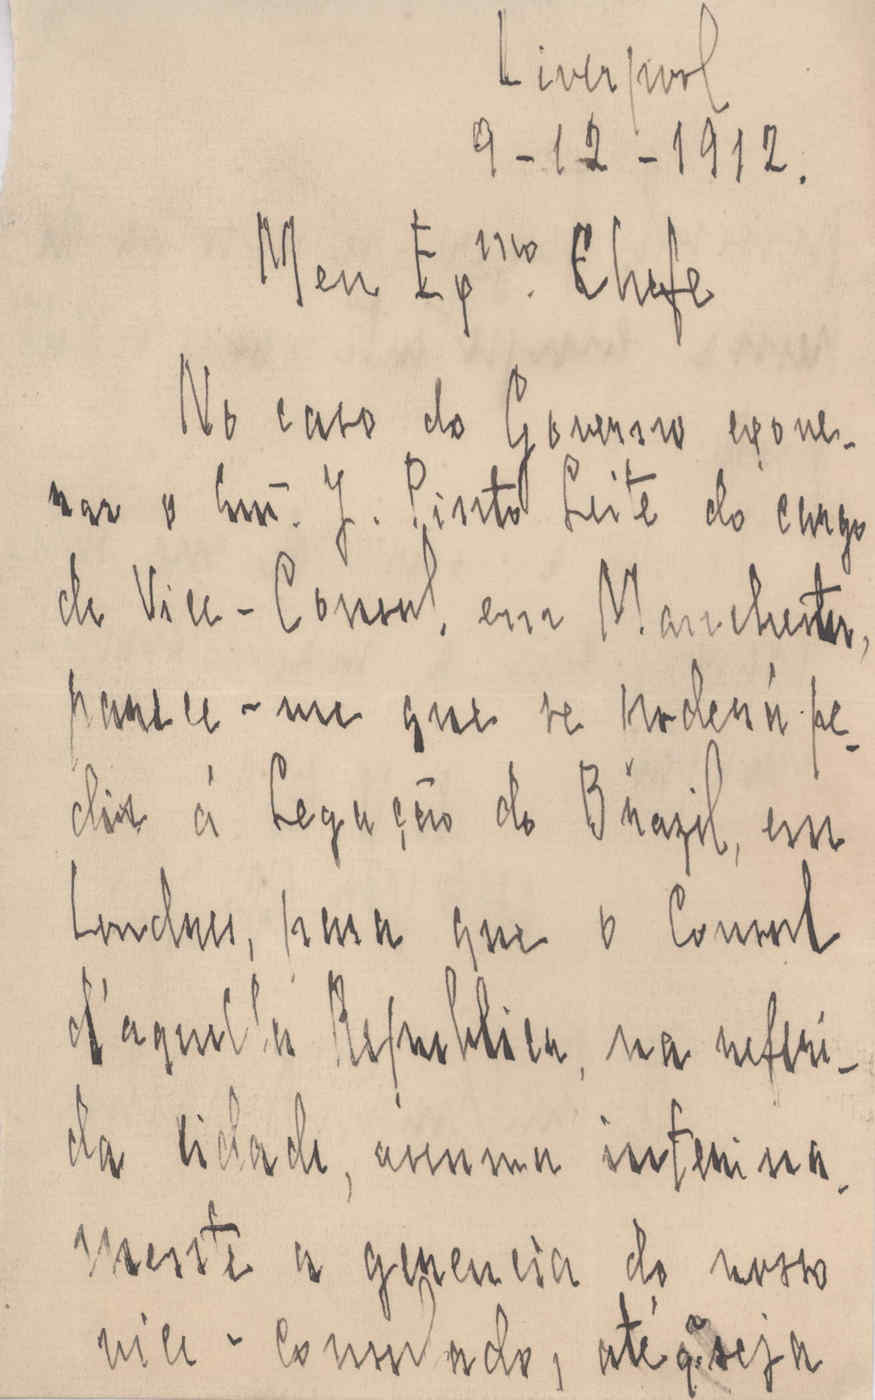 Liverpool
9-12-1912.
Meu Exmo. Chefe
No caso do Governo exone-
rar o Snr. J. Pinto Leite do cargo
de Vice-Consul, em Manchester,
parece-me que se poderá pe-
dir á Legação do Brazil, em
Londres, para que o Consul
d'aquella Republica, na referi-
da cidade, assuma interina-
mente a gerencia do nosso
vice-consulado, até q. seja